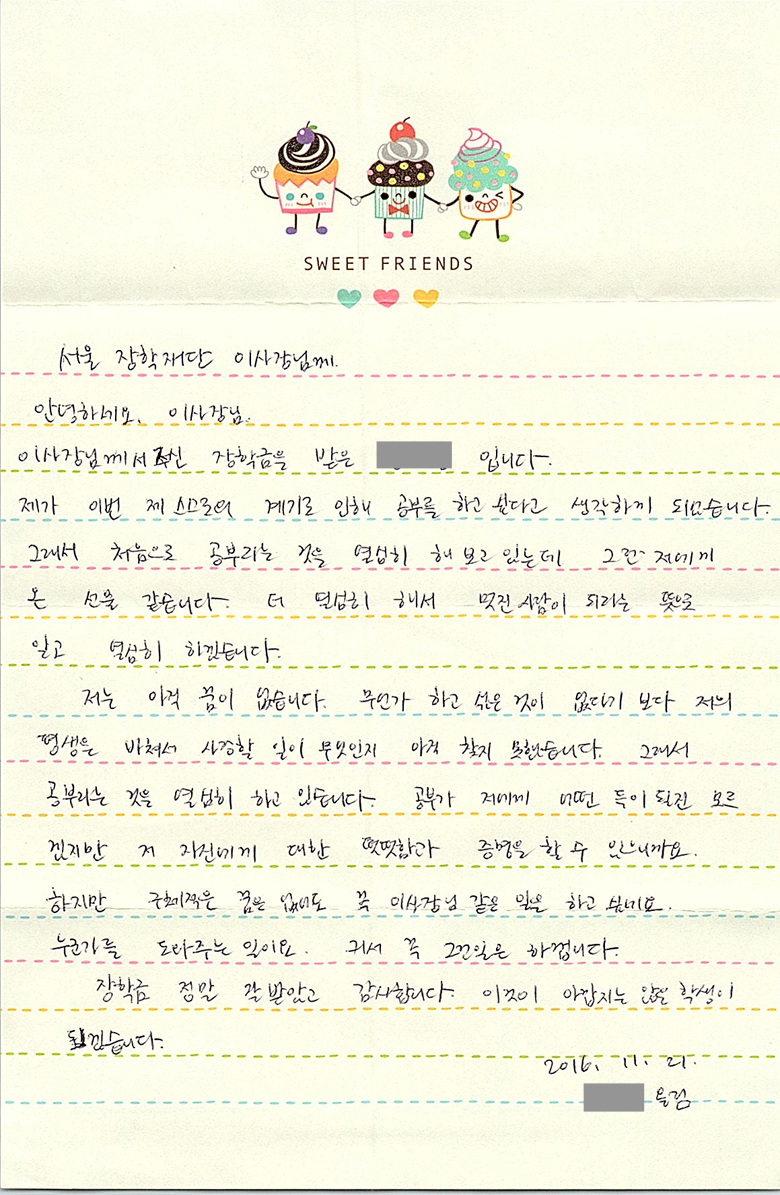 SWEET FRIENDS
서울 장학재단 이사장님께.
안녕하세요, 이사장님.
이사장님께서 주신 장학금을 받은 입니다.
제가 이번 제 스스로의 계기로 인해 공부를 하고 싶다고 생각하게 되었습니다.
그래서 처음으로 공부라는 것을 열심히 해 보고 있는데 그런 저에게
온 선물 같습니다. 더 열심히 해서 멋진 사람이 되라는 뜻으로
알고 열심히 하겠습니다.
저는 아직 꿈이 없습니다. 무언가 하고 싶은 것이 없다기 보다 저의
평생을 바쳐서 사랑할 일이 무엇인지 아직 찾지 못했습니다. 그래서
공부라는 것을 열심히 하고 있습니다. 공부가 저에게 어떤 득이 될진 모르
겠지만 저 자신에게 대한 떳떳함과 증명을 할 수 있으니까요.
하지만 구체적은 꿈은 없어도 꼭 이사장님 같은 일을 하고 싶네요.
누군가를 도와주는 일이요. 커서 꼭 그런일은 하겁니다.
장학금 정말 잘 받았고 감사합니다. 이것이 아깝지는 않을 학생이
되겠습니다.
2016. 11. 21.
올림